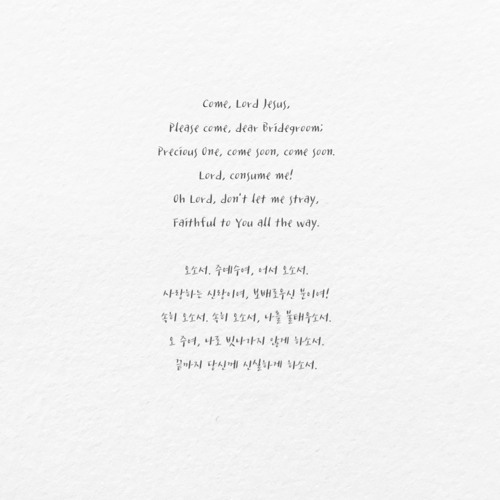 Come, Lord Jesus,
Please come, dear Bridegroom;
Precious One, come soon, come soon.
Lord, consume me!
Oh Lord, don't let me stray,
Faithful to You all the way.
오소서. 주예수여, 어서 오소서.
사랑하는 신랑이여, 보배로우신 분이여!
속히 오소서. 속히 오소서, 나를 불태우소서.
오 주여, 나로 빗나가지 않게 하소서.
끝까지 당신께 신실하게 하소서.